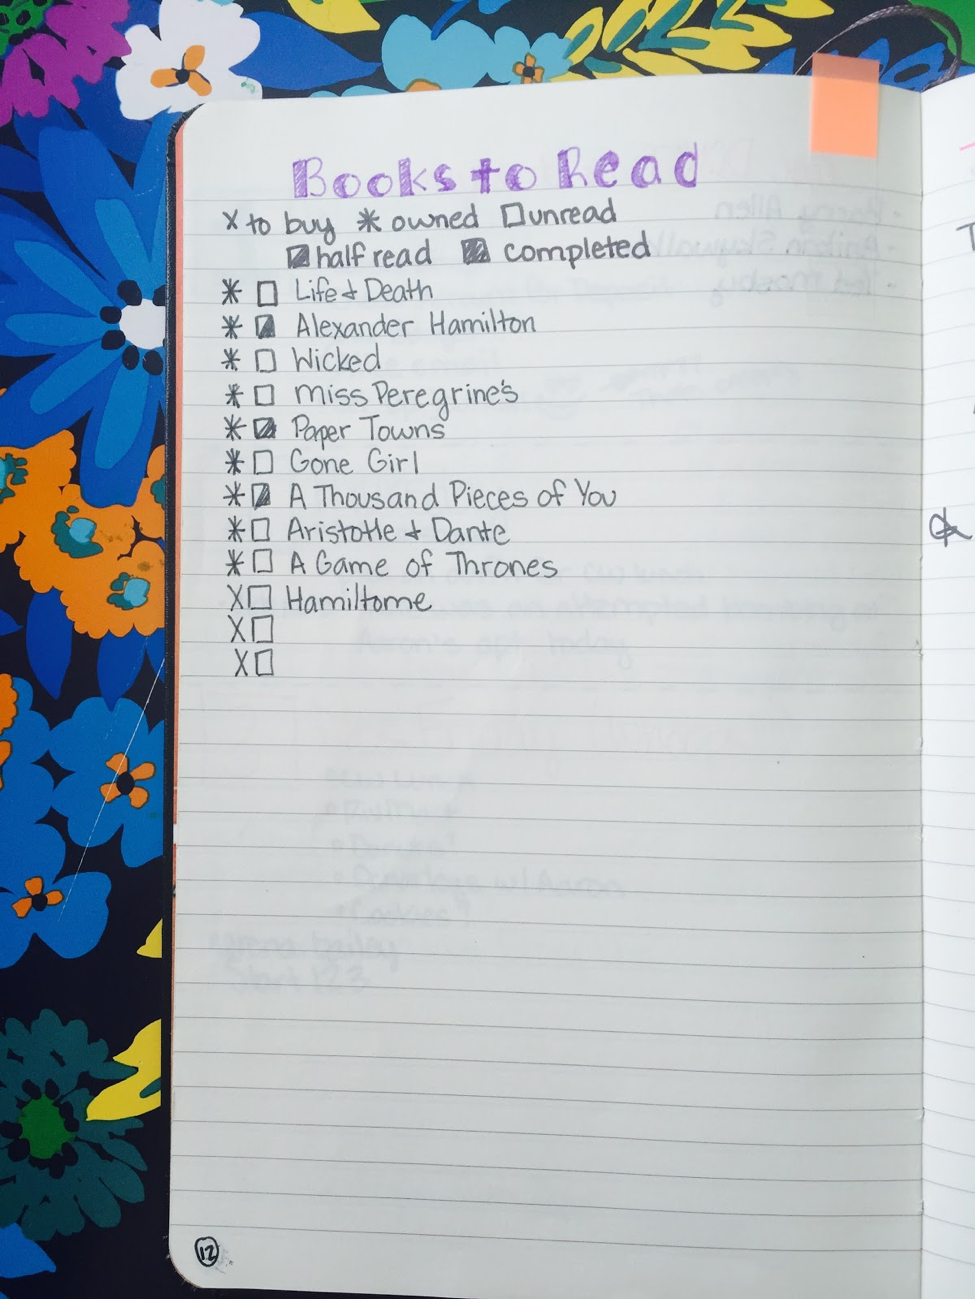 Books to Read
x to buy * owned □ unread
half read completed
* □ Life & Death
* Alexander Hamilton
* □ Wicked
* □ Miss Peregrine's
* Paper Towns
* □ Gone Girl
* A Thousand Pieces of You
* □ Aristotle & Dante
* □ A Game of Thrones
X □ Hamiltome
X □
X □
12